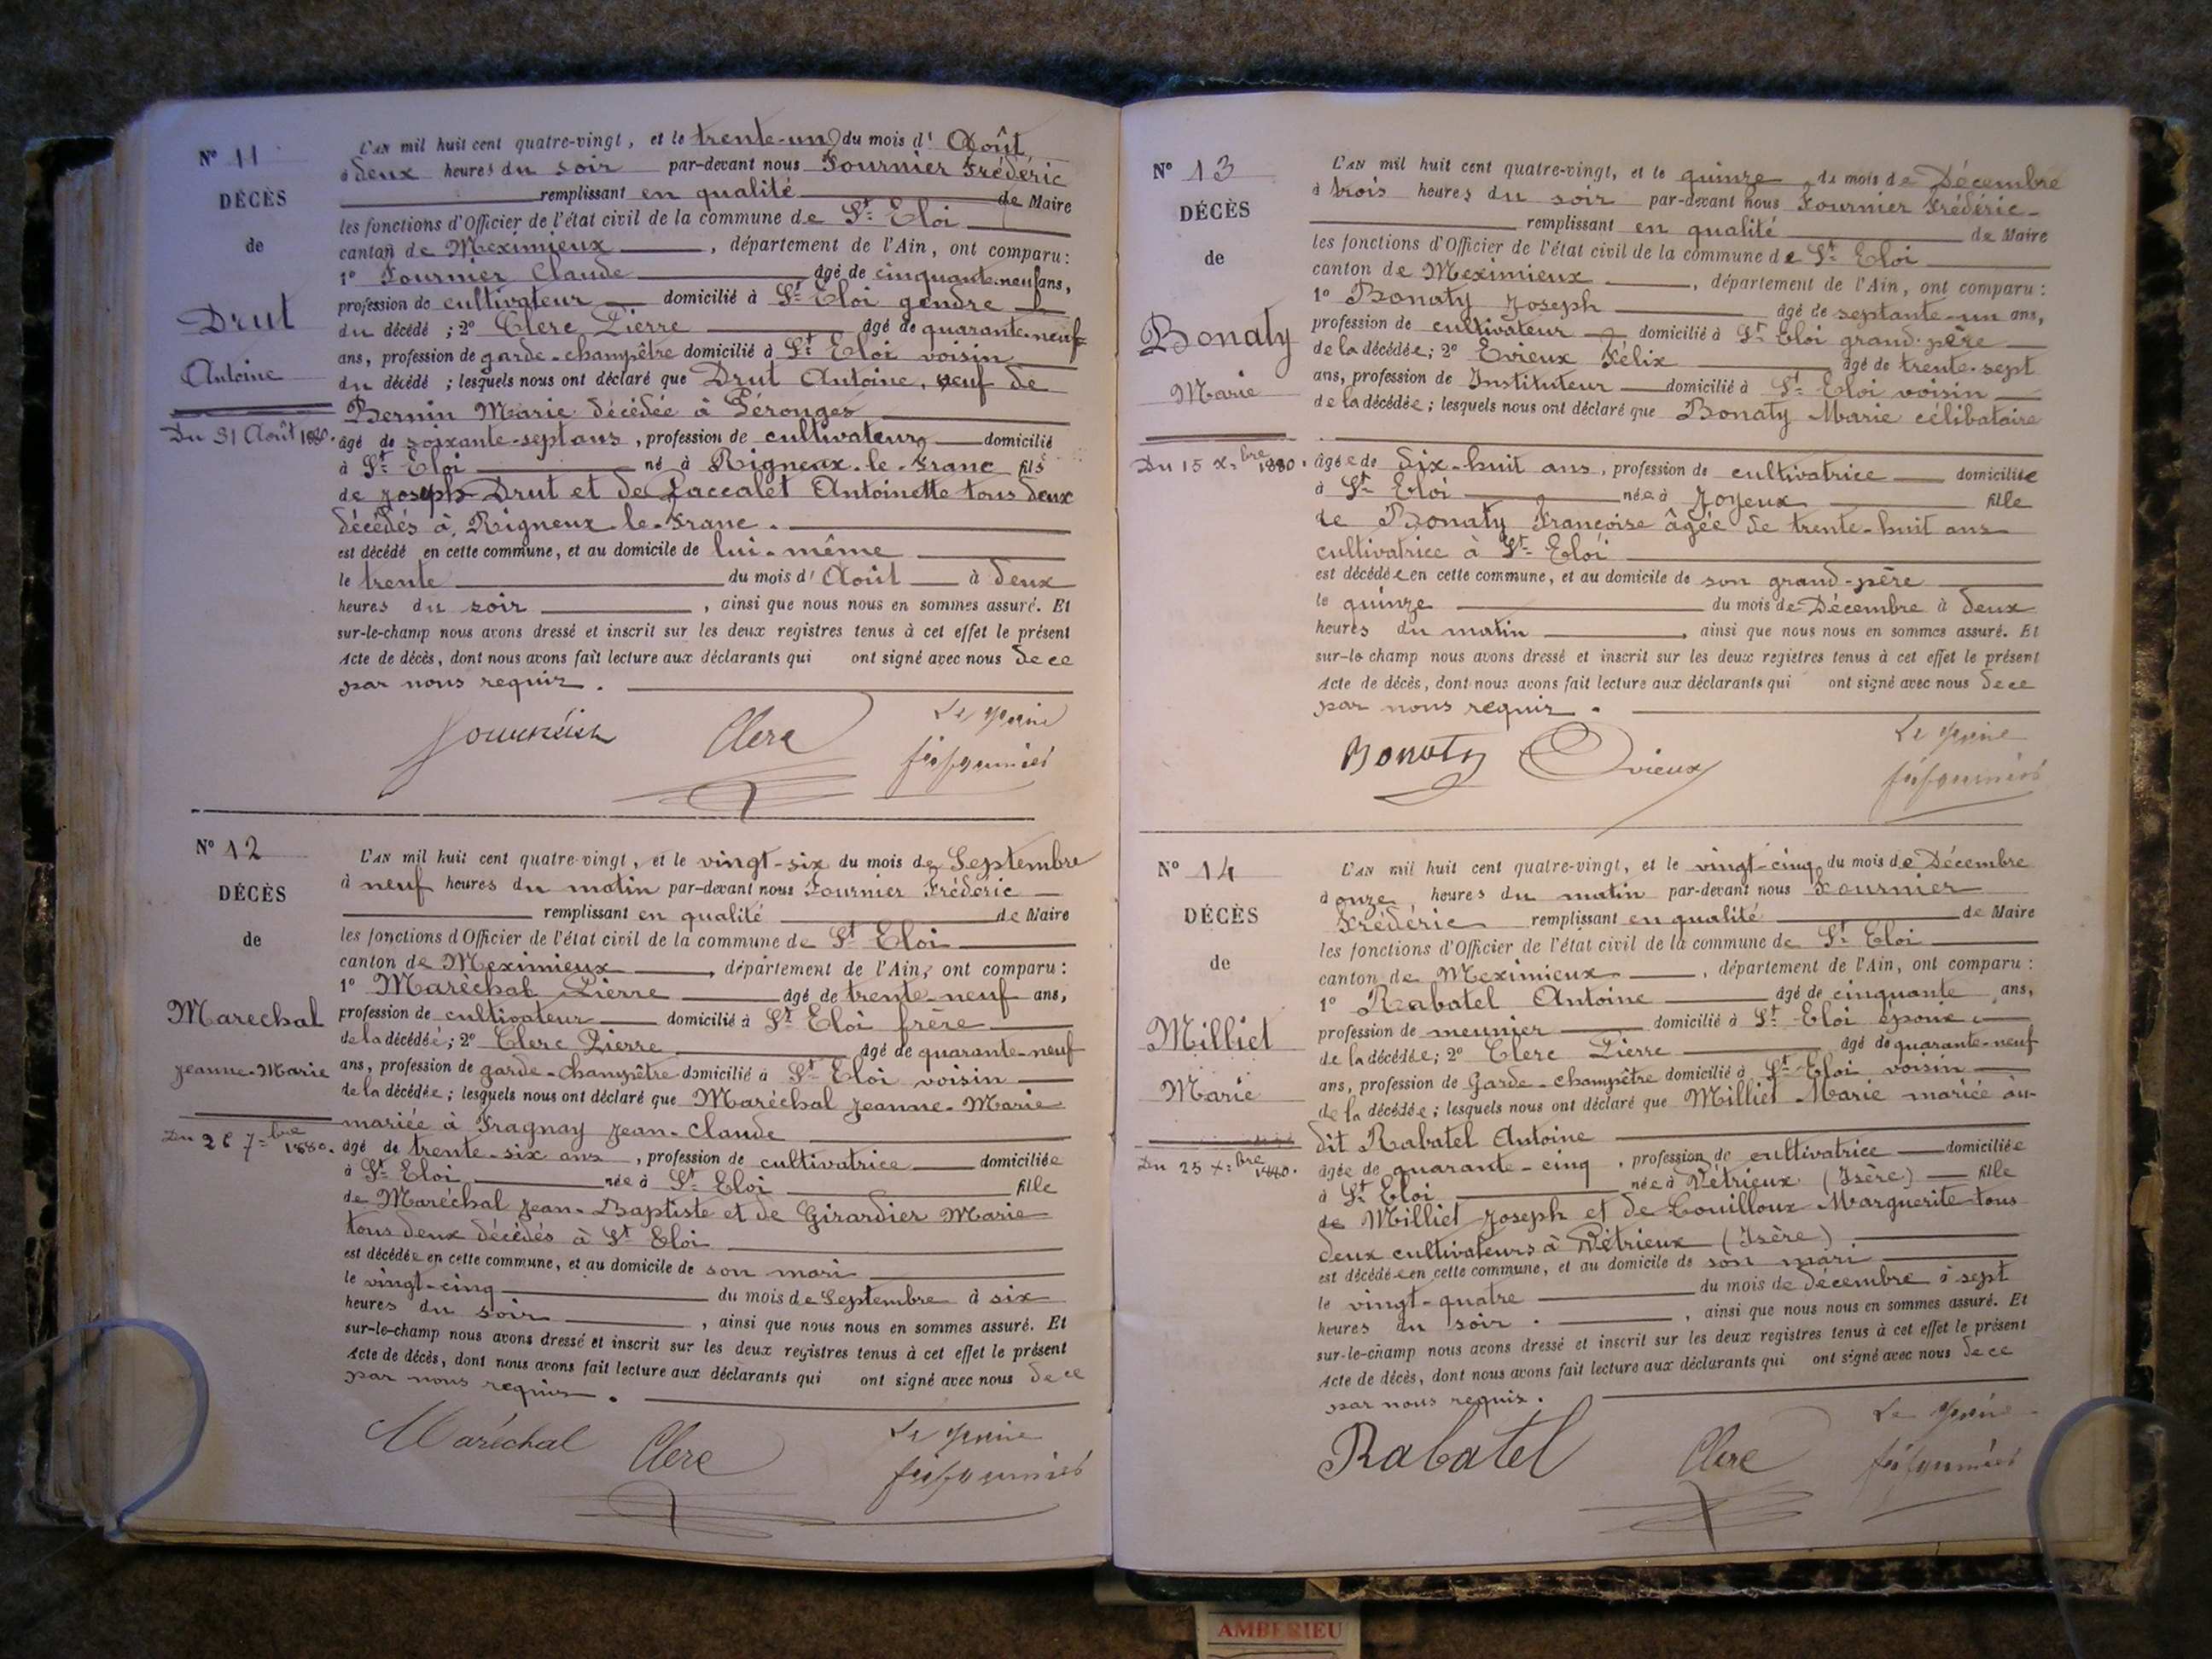 Nº 11
DÉCÈS
de
Drut
Antoine
Du 31 Août 1880.
L'AN mil huit cent quatre-vingt, et le trente-un du mois d' Août
à deux heures du soir par-devant nous Fournier Frédéric
remplissant en qualité de Maire
les fonctions d'Officier de l'état civil de la commune de St Eloi
canton de Meximieux, département de l'Ain, ont comparu:
1º Fournier Claude âgé de cinquante-neuf ans,
profession de cultivateur domicilié à St Eloi gendre
du décédé ; 2º Clerc Pierre âgé de quarante-neuf
ans, profession de garde-champêtre domicilié à St Eloi voisin
du décédé ; lesquels nous ont déclaré que Drut Antoine, veuf de
Bernin Marie décédée à Pérouges
âgé de soixante-sept ans, profession de cultivateur domicilié
à St Eloi né à Rigneux-le-Franc fils
de Joseph Drut et de Laccalet Antoinette tous deux
décédés à Rigneux le-Franc.
est décédé en cette commune, et au domicile de lui-même
le trente du mois d' Août à deux
heures du soir, ainsi que nous nous en sommes assuré. Et
sur-le-champ nous avons dressé et inscrit sur les deux registres tenus à cet effet le présent
Acte de décès, dont nous avons fait lecture aux déclarants qui ont signé avec nous de ce
par nous requis.
Fournier Clerc Le Maire
Nº 12
DÉCÈS
de
Marechal
Jeanne-Marie
Du 26 7=bre 1880.
L'AN mil huit cent quatre-vingt, et le vingt-six du mois de Septembre
à neuf heures du matin par-devant nous Fournier Frédéric
remplissant en qualité de Maire
les fonctions d'Officier de l'état civil de la commune de St Eloi
canton de Meximieux, département de l'Ain, ont comparu:
1º Maréchal Pierre âgé de trente-neuf ans,
profession de cultivateur domicilié à St Eloi frère
de la décédée; 2º Clerc Pierre âgé de quarante-neuf
ans, profession de garde-champêtre domicilié à St Eloi voisin
de la décédée; lesquels nous ont déclaré que Maréchal Jeanne-Marie
mariée à Fragnay Jean-Claude
âgé de trente-six ans, profession de cultivatrice domiciliée
à St Eloi née à St Eloi fille
de Maréchal Jean-Baptiste et de Girardier Marie
tous deux décédés à St Eloi
est décédée en cette commune, et au domicile de son mari
le vingt-cinq du mois de Septembre à six
heures du soir, ainsi que nous nous en sommes assuré. Et
sur-le-champ nous avons dressé et inscrit sur les deux registres tenus à cet effet le présent
Acte de décès, dont nous avons fait lecture aux déclarants qui ont signé avec nous de ce
par nous requis.
Maréchal Clerc Le Maire
Nº 13
DÉCÈS
de
Bonaty
Marie
Du 15 X=bre 1880.
L'AN mil huit cent quatre-vingt, et le quinze du mois de Décembre
à trois heures du soir par-devant nous Fournier Frédéric
remplissant en qualité de Maire
les fonctions d'Officier de l'état civil de la commune de St Eloi
canton de Meximieux, département de l'Ain, ont comparu:
1º Bonaty Joseph âgé de septante-un ans,
profession de cultivateur domicilié à St Eloi grand-père
de la décédée; 2º Evieux Félix âgé de trente-sept
ans, profession de Instituteur domicilié à St Eloi voisin
de la décédée; lesquels nous ont déclaré que Bonaty Marie célibataire
âgée de dix-huit ans, profession de cultivatrice domiciliée
à St Eloi née à Joyeux fille
de Bonaty Françoise âgée de trente-huit ans
cultivatrice à St Eloi
est décédée en cette commune, et au domicile de son grand-père
le quinze du mois de Décembre à deux
heures du matin, ainsi que nous nous en sommes assuré. Et
sur-le champ nous avons dressé et inscrit sur les deux registres tenus à cet effet le présent
Acte de décès, dont nous avons fait lecture aux déclarants qui ont signé avec nous de ce
par nous requis.
Bonaty Evieux Le Maire
Nº 14
DÉCÈS
de
Milliet
Marie
Du 25 X=bre 1880.
L'AN mil huit cent quatre-vingt, et le vingt-cinq du mois de Décembre
à onze, heures du matin par-devant nous Fournier
Frédéric remplissant en qualité de Maire
les fonctions d'Officier de l'état civil de la commune de St Eloi
canton de Meximieux, département de l'Ain, ont comparu:
1º Rabatel Antoine âgé de cinquante ans,
profession de meunier domicilié à St Eloi époux
de la décédée; 2º Clerc Pierre âgé de quarante-neuf
ans, profession de Garde-champêtre domicilié à St Eloi voisin
de la décédée; lesquels nous ont déclaré que Milliet Marie mariée au-
dit Rabatel Antoine
âgée de quarante-cinq, profession de cultivatrice domiciliée
à St Eloi née à Vétrieux (Isère) fille
de Milliet Joseph et de Couilloux Marguerite tous
deux cultivateurs à Vétrieux (Isère)
est décédée en cette commune, et au domicile de son mari
le vingt-quatre du mois de décembre à sept
heures du soir., ainsi que nous nous en sommes assuré. Et
sur-le-champ nous avons dressé et inscrit sur les deux registres tenus à cet effet le présent
Acte de décès, dont nous avons fait lecture aux déclarants qui ont signé avec nous de ce
par nous requis.
Rabatel Clerc Le Maire
AMBERIEU